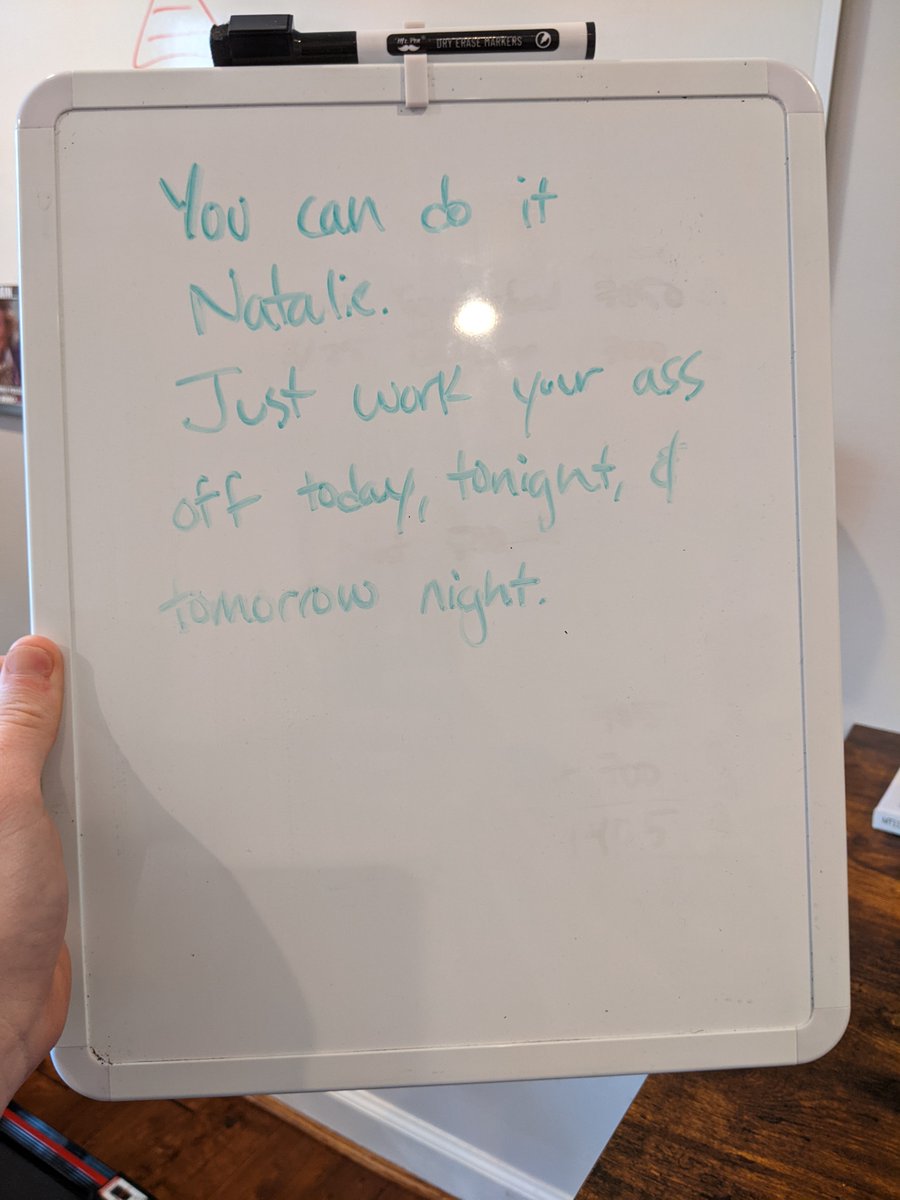 Mr. Pen DRY ERASE MARKERS
You can do it
Natalie.
Just work your ass
off today, tonight, &
tomorrow night.